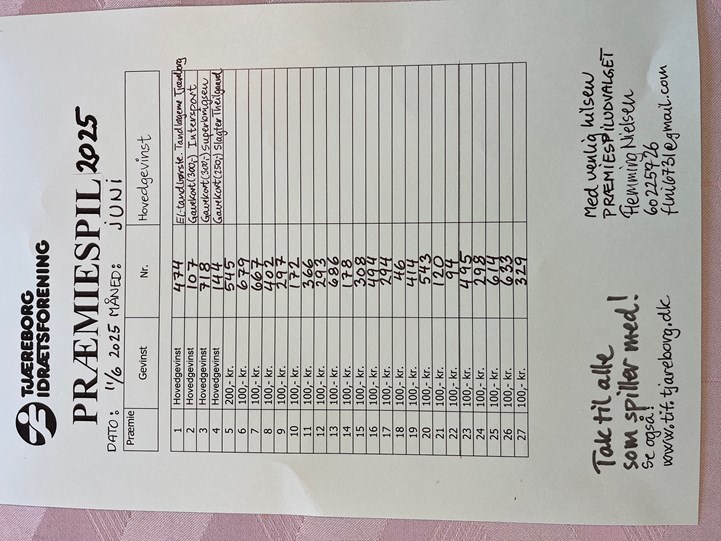 TJÆREBORG
IDRÆTSFORENING
PRÆMIESPIL 2025
DATO: 11/6 2025 MÅNED: JUNI
Præmie Gevinst Nr. Hovedgevinst
1 Hovedgevinst 474 El-tandbørste. Tandlægerne Tjæreborg
2 Hovedgevinst 107 Gavekort (300,-) Intersport
3 Hovedgevinst 718 Gavekort (300,-) Superbrugsen
4 Hovedgevinst 144 Gavekort (250,-) Slagter Theilgaard
5 200,- kr. 545
6 100,- kr. 679
7 100,- kr. 667
8 100,- kr. 402
9 100,- kr. 297
10 100,- kr. 172
11 100,- kr. 366
12 100,- kr. 293
13 100,- kr. 686
14 100,- kr. 178
15 100,- kr. 308
16 100,- kr. 494
17 100,- kr. 294
18 100,- kr. 46
19 100,- kr. 414
20 100,- kr. 543
21 100,- kr. 120
22 100,- kr. 94
23 100,- kr. 495
24 100,- kr. 298
25 100,- kr. 614
26 100,- kr. 633
27 100,- kr. 329
Tak til alle
som spiller med!
Se også!
www.tif.tjareborg.dk
Med venlig hilsen
PRÆMIESPILUDVALGET
Flemming Nielsen
60225926
flni6731@gmail.com